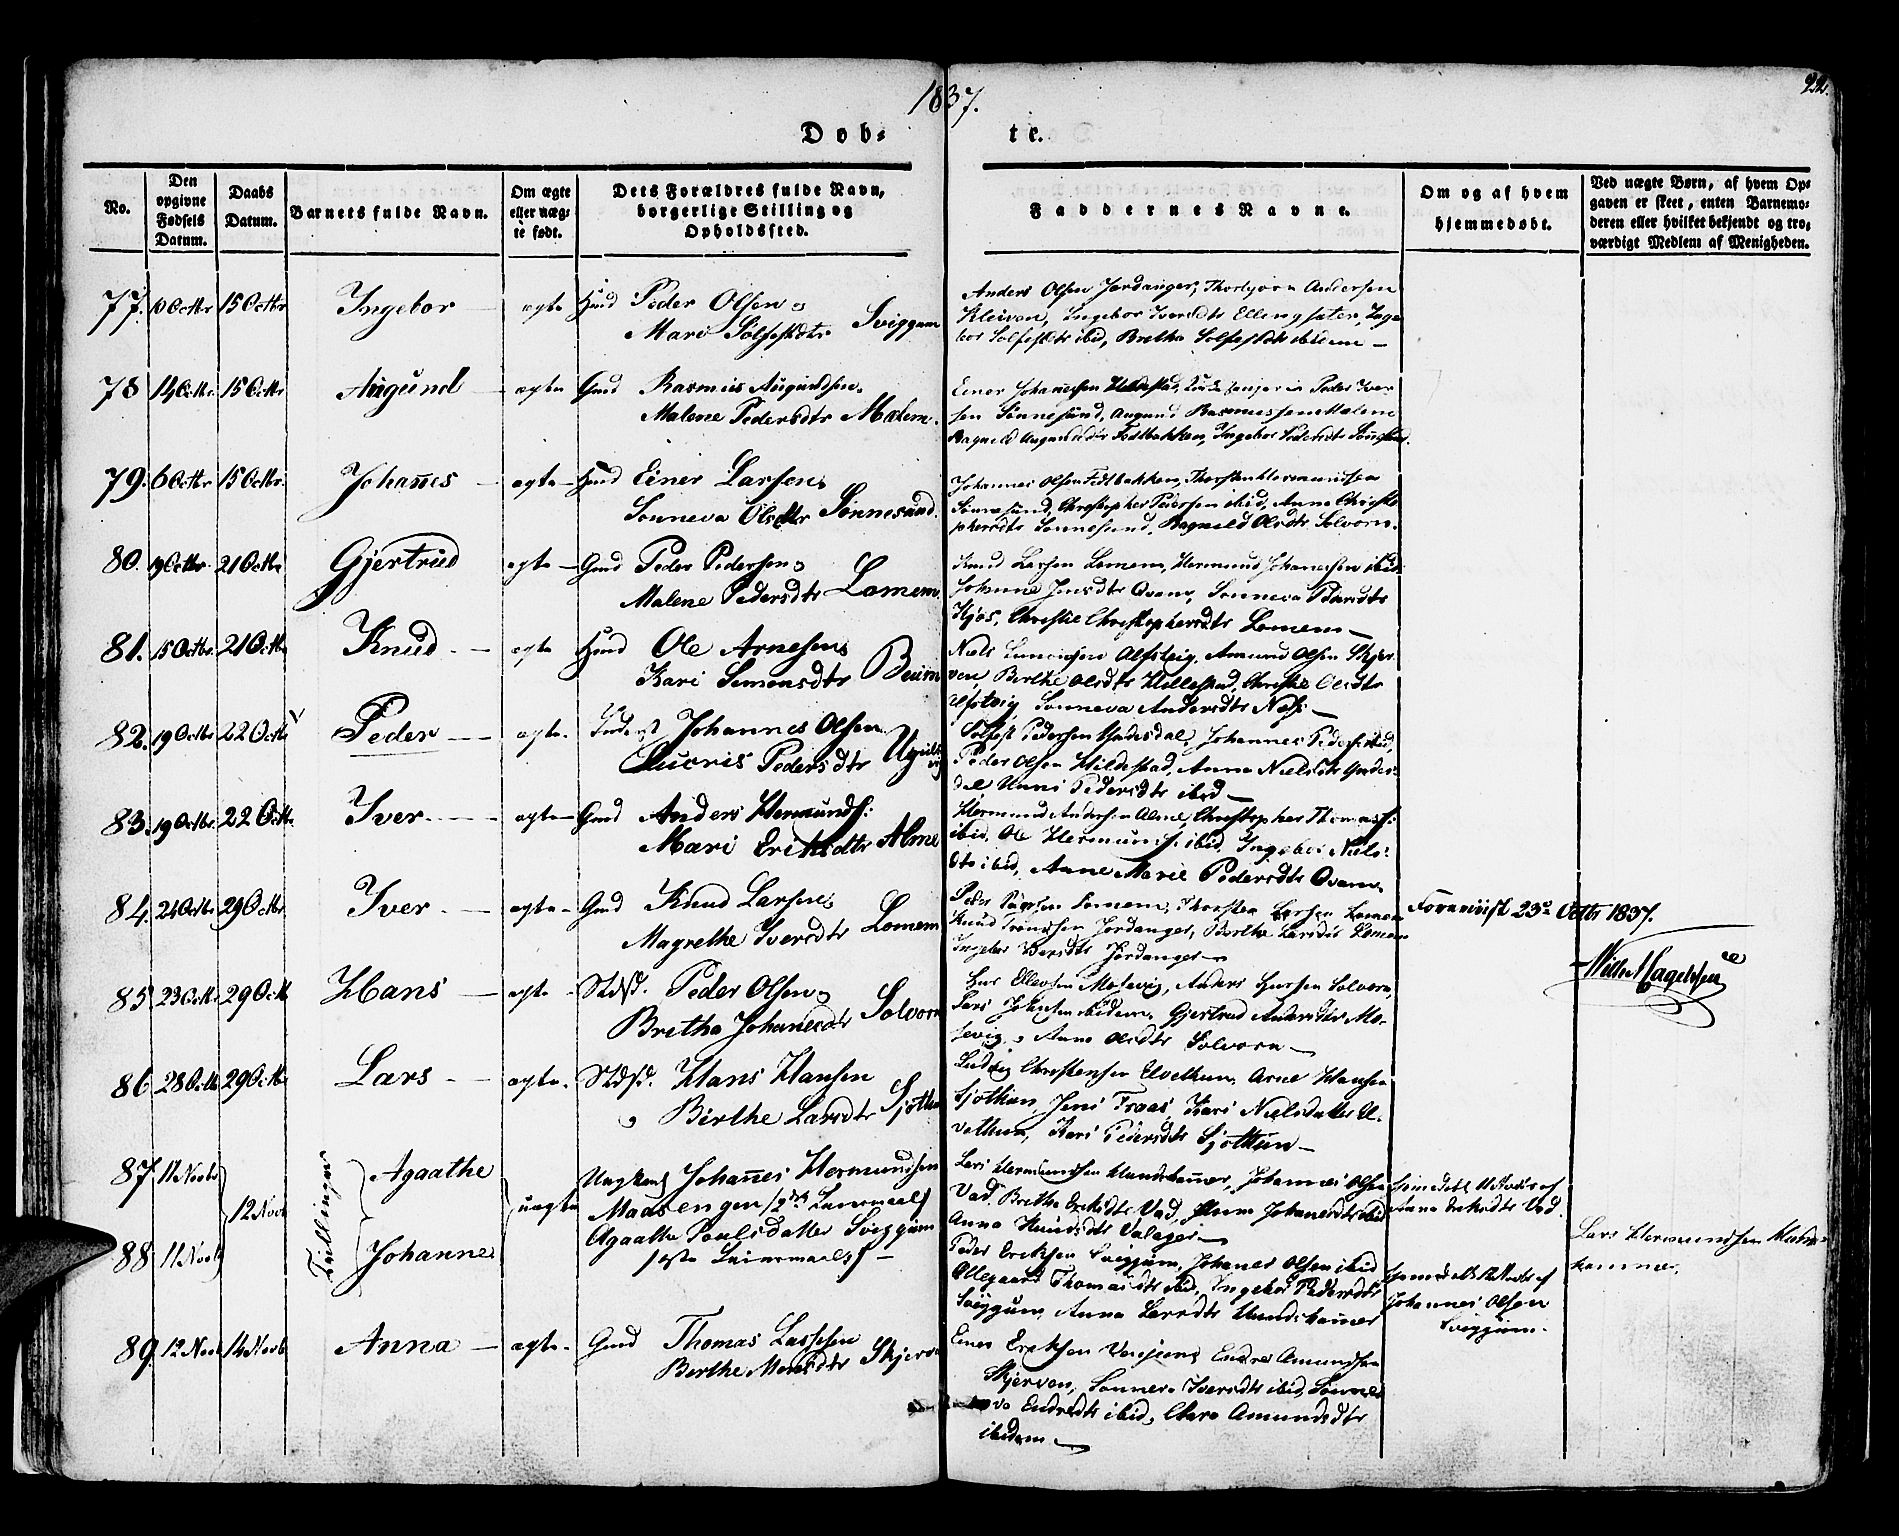 1837.
22.
Døb-
te.
No.
Den opgivne Fødsels Datum.
Daabs Datum.
Barnets fulde Navn.
Om ægte eller uæg- te født.
Dets Forældres fulde Navn, borgerlige Stilling og Opholdssted.
Faddernes Navne.
Om og af hvem hjemmedøbt.
Ved uægte Børn, af hvem Op- gaven er skeet, enten Barnemo- deren eller hvilket bekjendt og tro- værdigt Medlem af Menigheden.
77. 10 Octbr 15 Octbr Ingebor — ægte Hmd Peder Olsen &
Mari Solfestdtr Sviggum
Anders Olsen Jordanger, Thorbjørn Andersen
Kleiven, Ingebor Iversdtr Ellengsæter, Inge-
bor Solfestdtr ibid, Brethe Solfestdtr ibidem —
78 14 Octbr 15 Octbr Augund — ægte Gmd Rasmus Augundsen
Malene Pedersdtr Mælem.
Einer Johannesen Hildestad, Peder Iver-
sen Sønnesund, Augund Rasmussen Mælem
Ragneld Augundsdtr Fedtbakken, Ingebor Pedersdtr
79. 6 Octbr 15 Octbr. Johañes — ægte Hmd Einer Larsen &
Sonneva Olsdtr Sønnesund.
Johannes Olsen Fedtbakken, Thorsten Hermundsen
Sønnesund, Christopher Pedersen ibid, Anne Christo-
phersdtr Sønnesund, Ragneld Olsdtr Solvorn.
80. 19 Octbr. 21 Octbr Gjertrud ægte — Gmd Peder Pedersen &
Malene Pedersdtr Lomem
Knud Larsen Lomem, Hermund Johannesen ibid
Johanne Jensdtr Qvam, Sonneva Pedersdtr
Kjøs, Christie Christophersdtr Lomem —
81. 15 Octbr. 21 Octbr Knud — ægte Hmd Ole Arnesen &
Kari Simonsdtr Beium
Niels Alfstvig, Amund Olsen Skjer-
ven Berthe Olsdtr Hillestad, Christie Olsdtr
Alfstvig Sonneva Andersdtr Næs —
82. 19 Octbr 22 Octbr Peder — ægte. Inderst Johannes Olsen
Lucris Pedersdtr
Solfest Pedersen Johannes Pedersen ibid,
Peder Olsen Hildestad, Anna Nielsdtr
Unni Pedersdtr ibid —
83. 19 Octbr. 22 Octbr Iver — ægte — Gmd Anders Hermunds:
Mari Eriksdtr Alme
Hermund Andersen Alme, Christopher Thomass:
ibid, Ole Hermunds: ibid, Ingebor Niels-
dtr ibid, Anne Marie Pedersdtr Qvam
84. 24 Octbr 29 Octbr. Iver — ægte — Gmd Knud Larsen &
Magrethe Iversdtr Lomem
Peder Lomem, Thorsten Larsen Lomem
Knud Jordanger, Berthe Larsdtr Lomem
Ingebor Iversdtr Jordanger —
Octbr 1837.
85. 23 Octbr 29 Octbr Hans — ægte — Stdsd. Peder Olsen &
Bretha Johanesdtr Solvorn
Ellevsen Molevig, Anders Solvorn,
Lars Johnsen ibidem, Gjertrud Andersdtr Mo-
levig, & Anne Olsdtr Solvorn —
86 28 Octbr 29 Octbr Lars — ægte. Stdsd. Hans Hansen
& Birthe Larsdtr
Ludvig Christensen Elvethun, Arne Hansen
Sjøthun, Jens Traas, Kari Nielsdatter El-
vethun, Kari Pedersdtr Sjøthun —
87. 11 Novbr
88. 11 Novbr
12 Novbr
Tvillinger
Agaathe
Johanne
uægte
Ungkarl Johañes Hermundsen
Maasengen /2det Leiermaal/
Agaathe Poulsdatter Sviggum
/1ste Leiermaal/ —
Lars Hermundsen Hundshamer, Johannes Olsen
Vad, Brethe Eriksdtr Vad, Johanesdtr ibid
Anna Knudsdtr Valager —
Hjemedøbt 11 Novbr af
Anna Eriksdtr Vad.
Peder Eriksen Sviggum, Johanes Olsen ibid
Ollegaard Thomasdtr ibid, Ingebor Pedersdtr
Sviggum, Anna Larsdtr Hundshamer
Hjemedøbt 12 Novbr af
Johannes Olsen
Sviggum.
Lars Hermundsen Hunds-
hammer.
89. 12 Novb 14 Novb Anna — ægte. Gmd Thomas Lassesen
Berthe Monsdtr Skjerven
Einer Eriksen Venjum, Endre Amundsen
Skjerven, Sonneva Iversdtr ibid, Sonne-
va Endresdtr ibid, Clara Amundsdtr
ibidem —